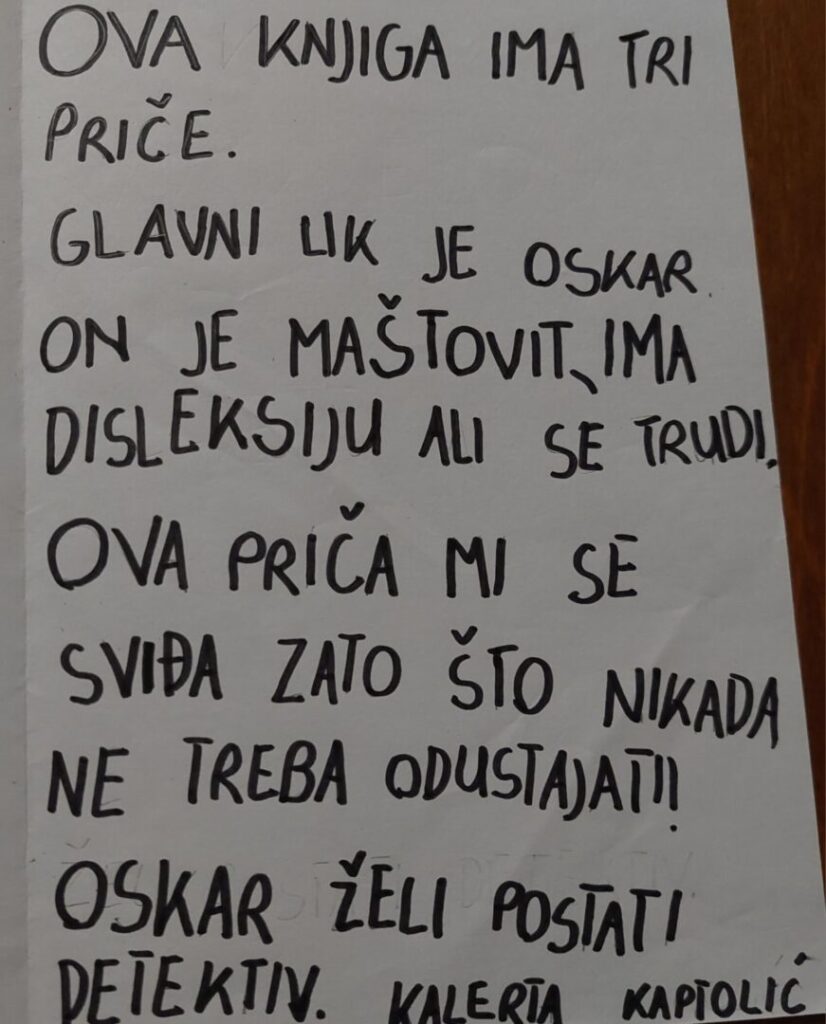 OVA KNJIGA IMA TRI
PRIČE.
GLAVNI LIK JE OSKAR.
ON JE MAŠTOVIT, IMA
DISLEKSIJU ALI SE TRUDI.
OVA PRIČA MI SE
SVIĐA ZATO ŠTO NIKADA
NE TREBA ODUSTAJATI!
OSKAR ŽELI POSTATI
DETEKTIV. KALERTA KAPTOLIĆ